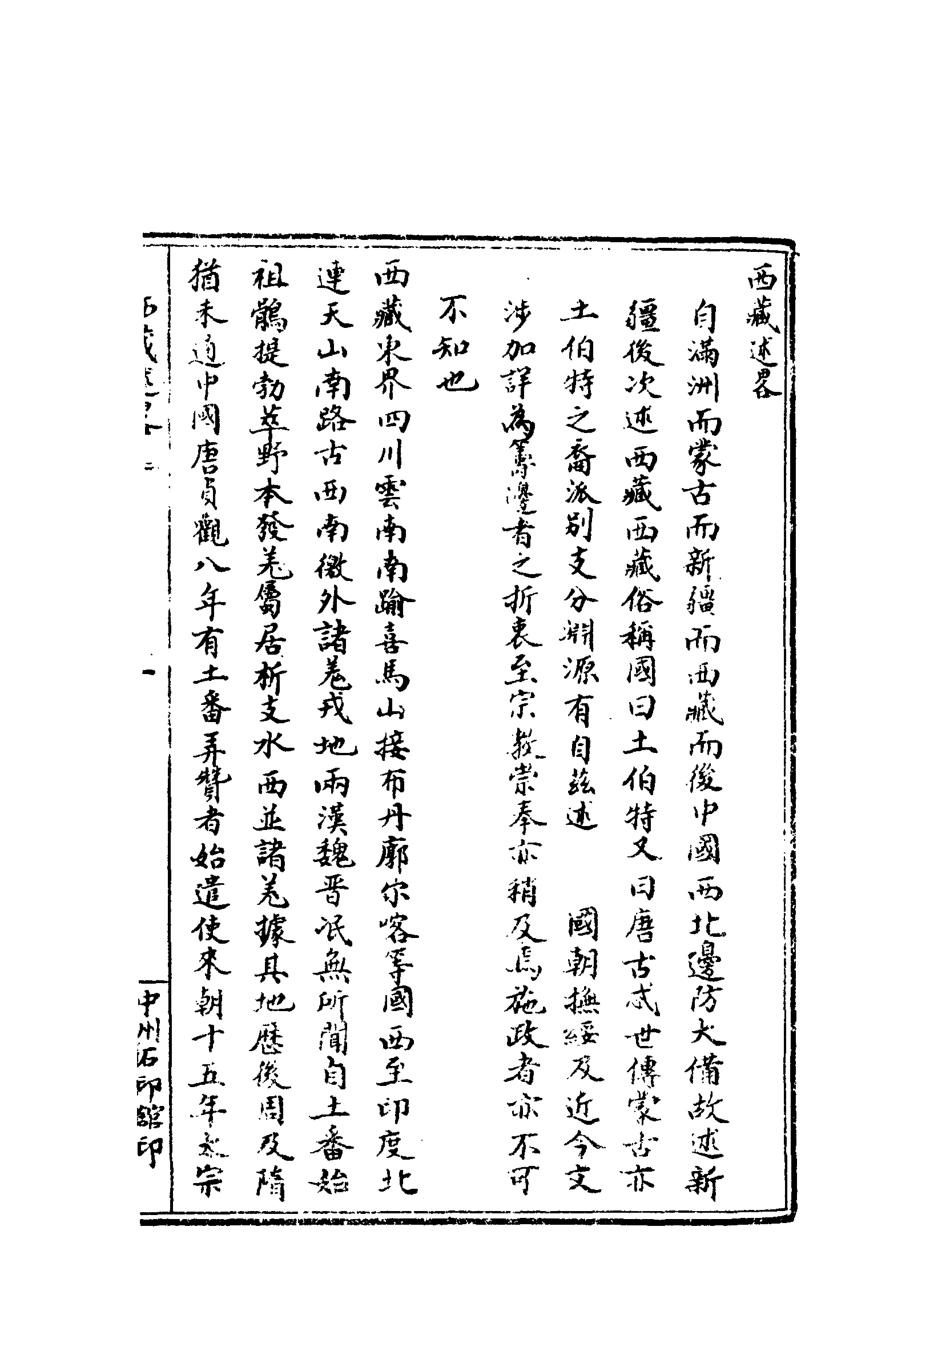 西藏述畧
自滿洲而蒙古而新疆而西藏而後中國西北邊防大備故述新
疆後次述西藏西藏俗稱國曰土伯特又曰唐古忒世傳蒙古亦
土伯特之裔派別支分淵源有自茲述　國朝撫綏及近今交
涉加詳為籌邊者之折衷至宗教崇奉亦稍及焉施政者亦不可
不知也
西藏東界四川雲南南踰喜馬山接布丹廓尔喀等國西至印度北
連天山南路古西南徼外諸羌戎地兩漢魏晋泯無所聞自土番始
祖鶻提勃萃野本發羌屬居析支水西並諸羌據其地歷後周及隋
猶未通中國唐貞觀八年有土番弄贊者始遣使來朝十五年太宗
西藏述畧
一
中州石印館印